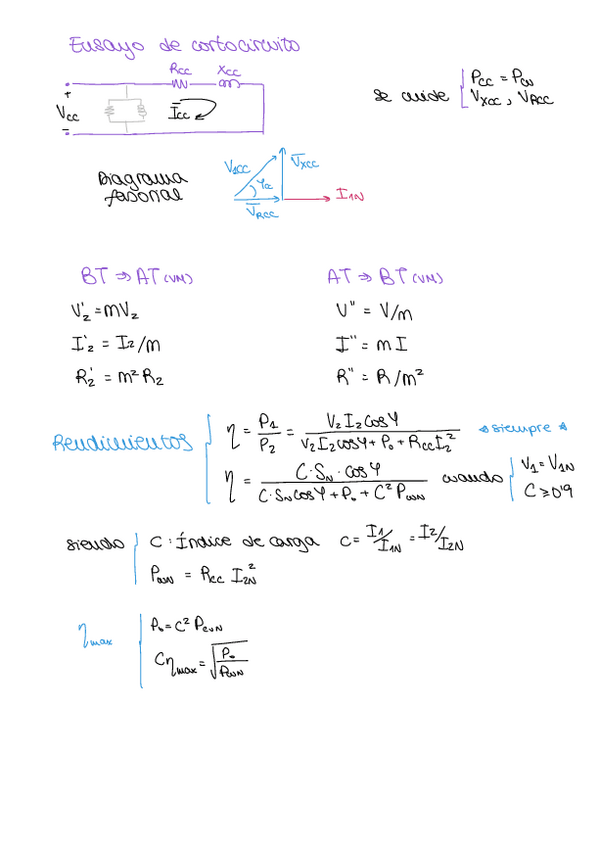 Ensayo de cortocircuito
Rcc Xcc
+
Vcc
-
Icc
se mide
Pcc = Pcu
Vxcc, VRcc
Diagrama fasorial
V1cc
φcc
VXcc
VRcc
I1N
BT ⇒ AT (VM)
V2' = mV2
I'2 = I2/m
R2' = m² R2
AT ⇒ BT (VM)
V" = V/m
I" = m I
R" = R/m²
Rendimientos
η = P1/P2 = V2 I2 cosφ / (V2 I2 cosφ + Po + Rcc I2²) * siempre *
η = C·SN·cosφ / (C·SN cosφ + Po + C² PcuN) cuando V1 = V1N
C ≥ 0'9
siendo
C: Índice de carga C = I1/I1N = I2/I2N
PcuN = Rcc I2N²
ηmax
Po = C² PcuN
Cηmax = √(Po/PcuN)